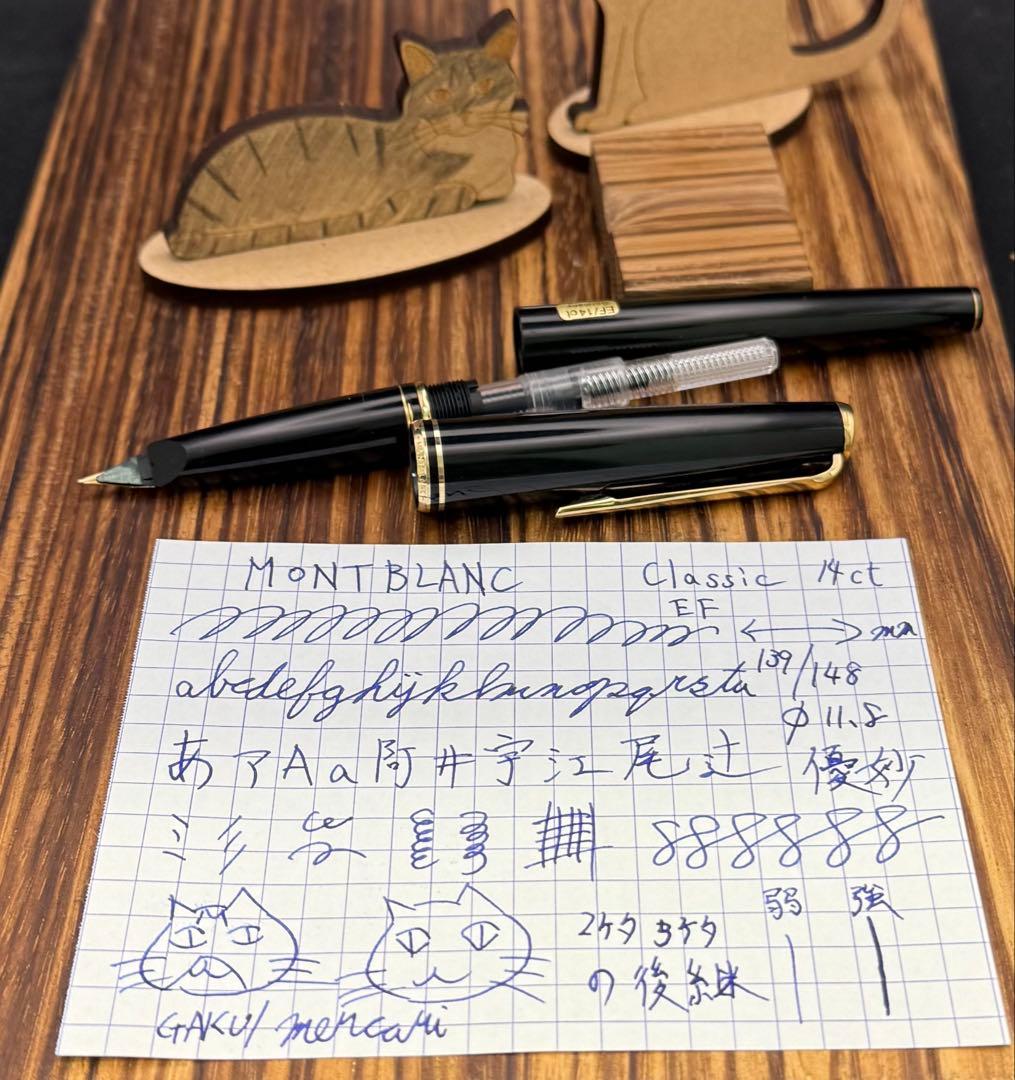 EF/14ct
MONTBLANC Classic 14ct
EF
mm
abcdefghijklmnopqrstu 139/148
φ 11.8
あアAa阿井宇江尾辻 優妙
888888
弱 強
2ケタ 3ケタ
の後継
GAKU/mercari